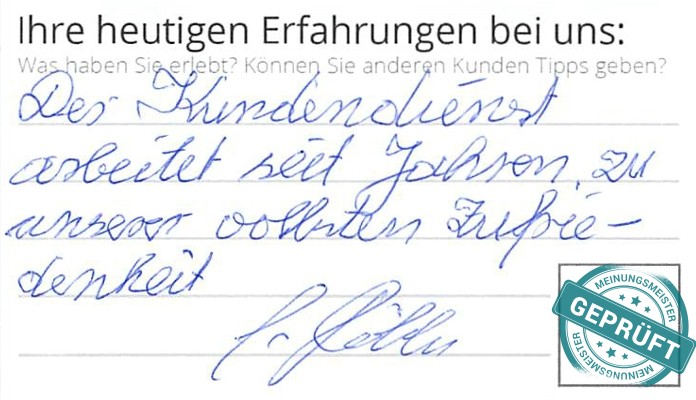 Ihre heutigen Erfahrungen bei uns:
Was haben Sie erlebt? Können Sie anderen Kunden Tipps geben?
Der Kundendienst
arbeitet seit Jahren, zu
unserer vollsten Zufrie-
denheit
MEINUNGSMEISTER
GEPRÜFT
MEINUNGSMEISTER